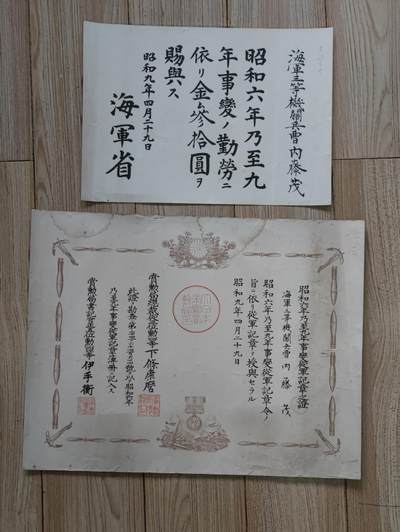 海軍三等機關兵曹 内藤茂
昭和六年乃至九
年事變ノ勤勞ニ
依リ金參拾圓ヲ
賜與ス
昭和九年四月二十九日
海軍省
昭和六年乃至九年事變從軍記章之證
海軍三等機關兵曹 内藤 茂
昭和六年乃至九年事變從軍記章令ノ
旨ニ依リ從軍記章ヲ授與セラル
昭和九年四月二十九日
賞勳局總裁 下條康麿
此證ヲ勘査シ 昭和六年
乃至九年事變從軍記章簿册ニ記入ス
賞勳局書記官 伊手衡